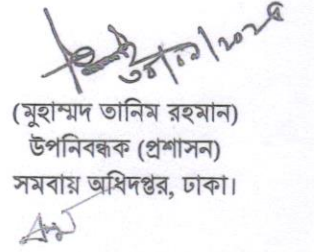 (মুহাম্মদ তানিম রহমান)
উপনিবন্ধক (প্রশাসন)
সমবায় অধিদপ্তর, ঢাকা।